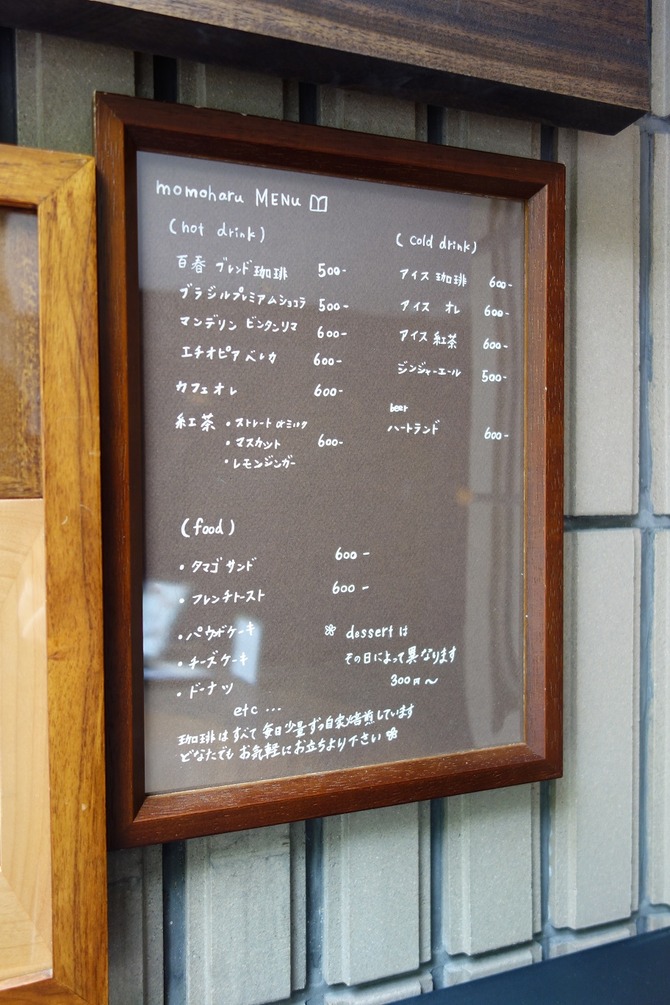 momoharu MENU
(hot drink)
百春 ブレンド珈琲 500-
ブラジルプレミアムショコラ 500-
マンデリン ビンタンリマ 600-
エチオピア ベレカ 600-
カフェオレ 600-
紅茶 ・ストレート or ミルク
・マスカット 600-
・レモンジンガー
(cold drink)
アイス 珈琲 600-
アイス オレ 600-
アイス 紅茶 600-
ジンジャーエール 500-
beer
ハートランド 600-
(food)
・タマゴ サンド 600-
・フレンチトースト 600-
・パウンドケーキ
・チーズケーキ
・ドーナツ
etc …
dessert は
その日によって異なります
300円〜
珈琲はすべて毎日少量ずつ自家焙煎しています
どなたでもお気軽にお立ちより下さい